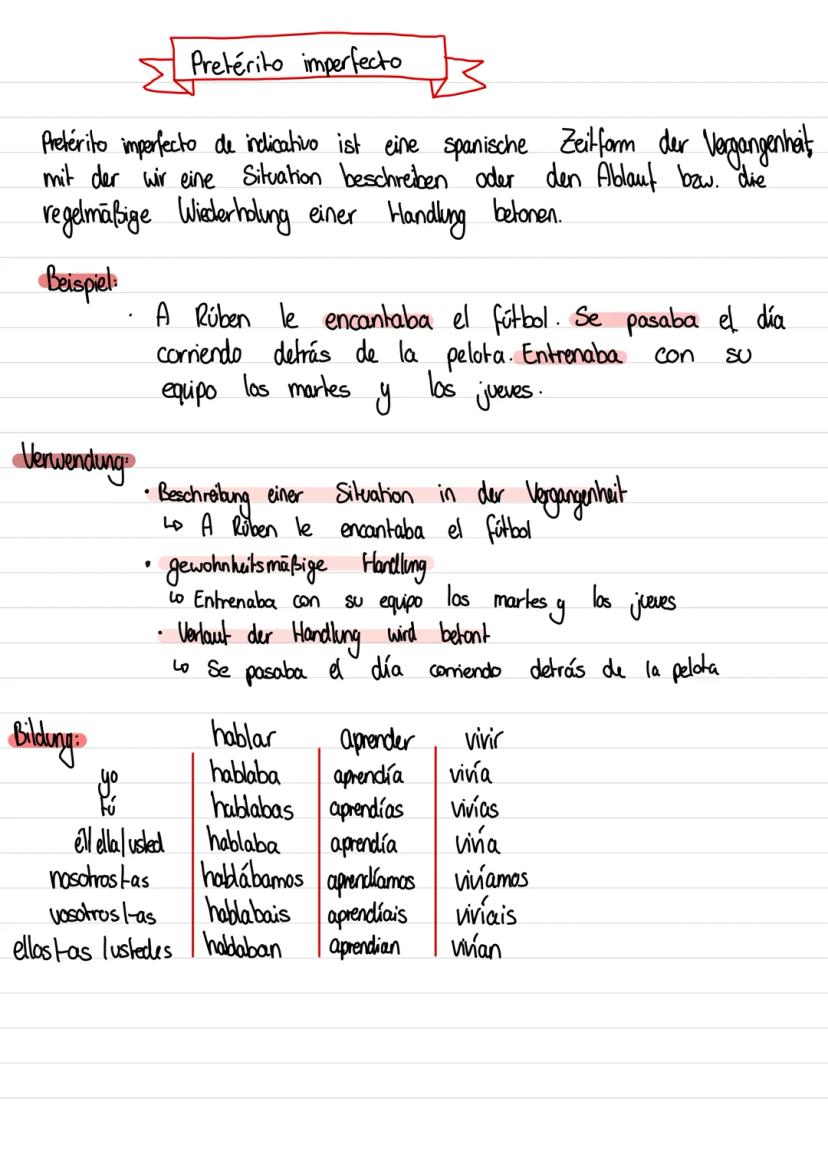 Pretérito imperfecto
Pretérito imperfecto de indicativo ist eine spanische Zeitform der Vergangenheit,
mit der wir eine Situation beschreiben oder den Ablauf bzw. die
regelmäßige Wiederholung einer Handlung betonen.
Beispiel:
· A Rúben le encantaba el fútbol. Se pasaba el día
corriendo detrás de la pelota. Entrenaba con su
equipo los martes y los jueves.
Verwendung:
· Beschreibung einer Situation in der Vergangenheit
↳ A Rúben le encantaba el fútbol
· gewohnheitsmäßige Handlung
↳ Entrenaba con su equipo los martes y los jueves
· Verlauf der Handlung wird betont
↳ Se pasaba el día corriendo detrás de la pelota
Bildung: hablar aprender vivir
yo hablaba aprendía vivía
tú hablabas aprendías vivías
él/ella/usted hablaba aprendía vivía
nosotros/-as hablábamos aprendíamos vivíamos
vosotros/-as hablabais aprendíais vivíais
ellos/-as/ustedes hablaban aprendian vivían